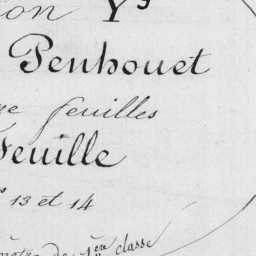 ion Y
Penhouet
feuilles
Feuille
13 et 14
de 1ère classe